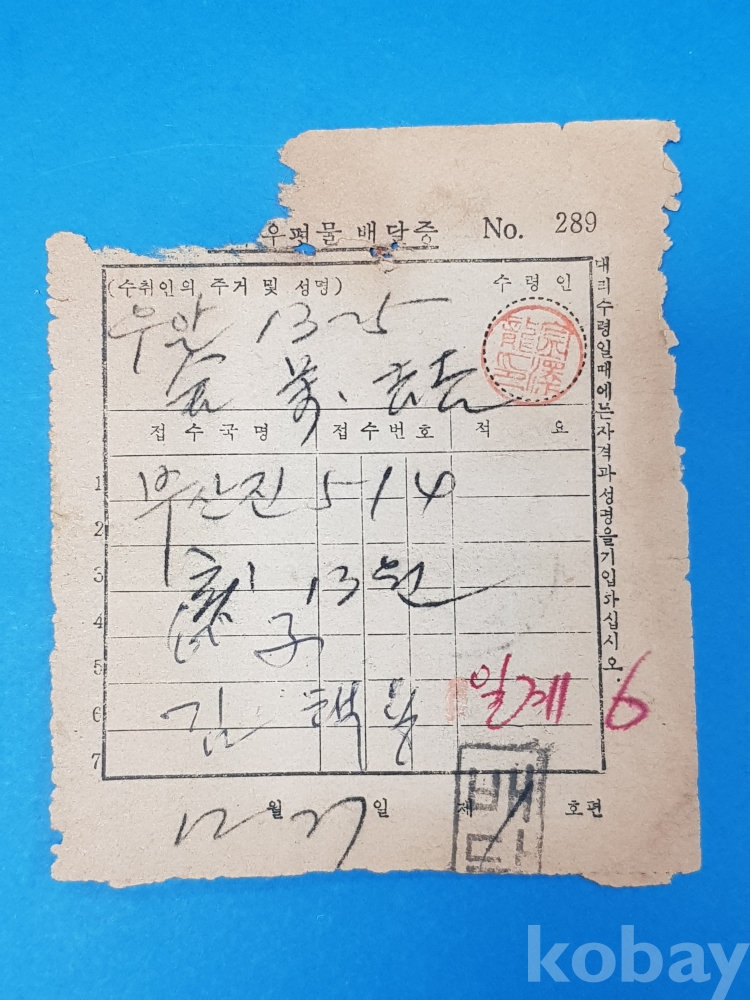 우편물 배달증 No. 289
(수취인의 주거 및 성명) 수령인
우암 1325
접수국명 접수번호 적요
1
부산진 514
2
3
13원
4
子
5
6
김택용 일계 6
7
12월 27일 제 1 호편
배달
대리수령일때에는자격과성명을기입하십시오.
kobay